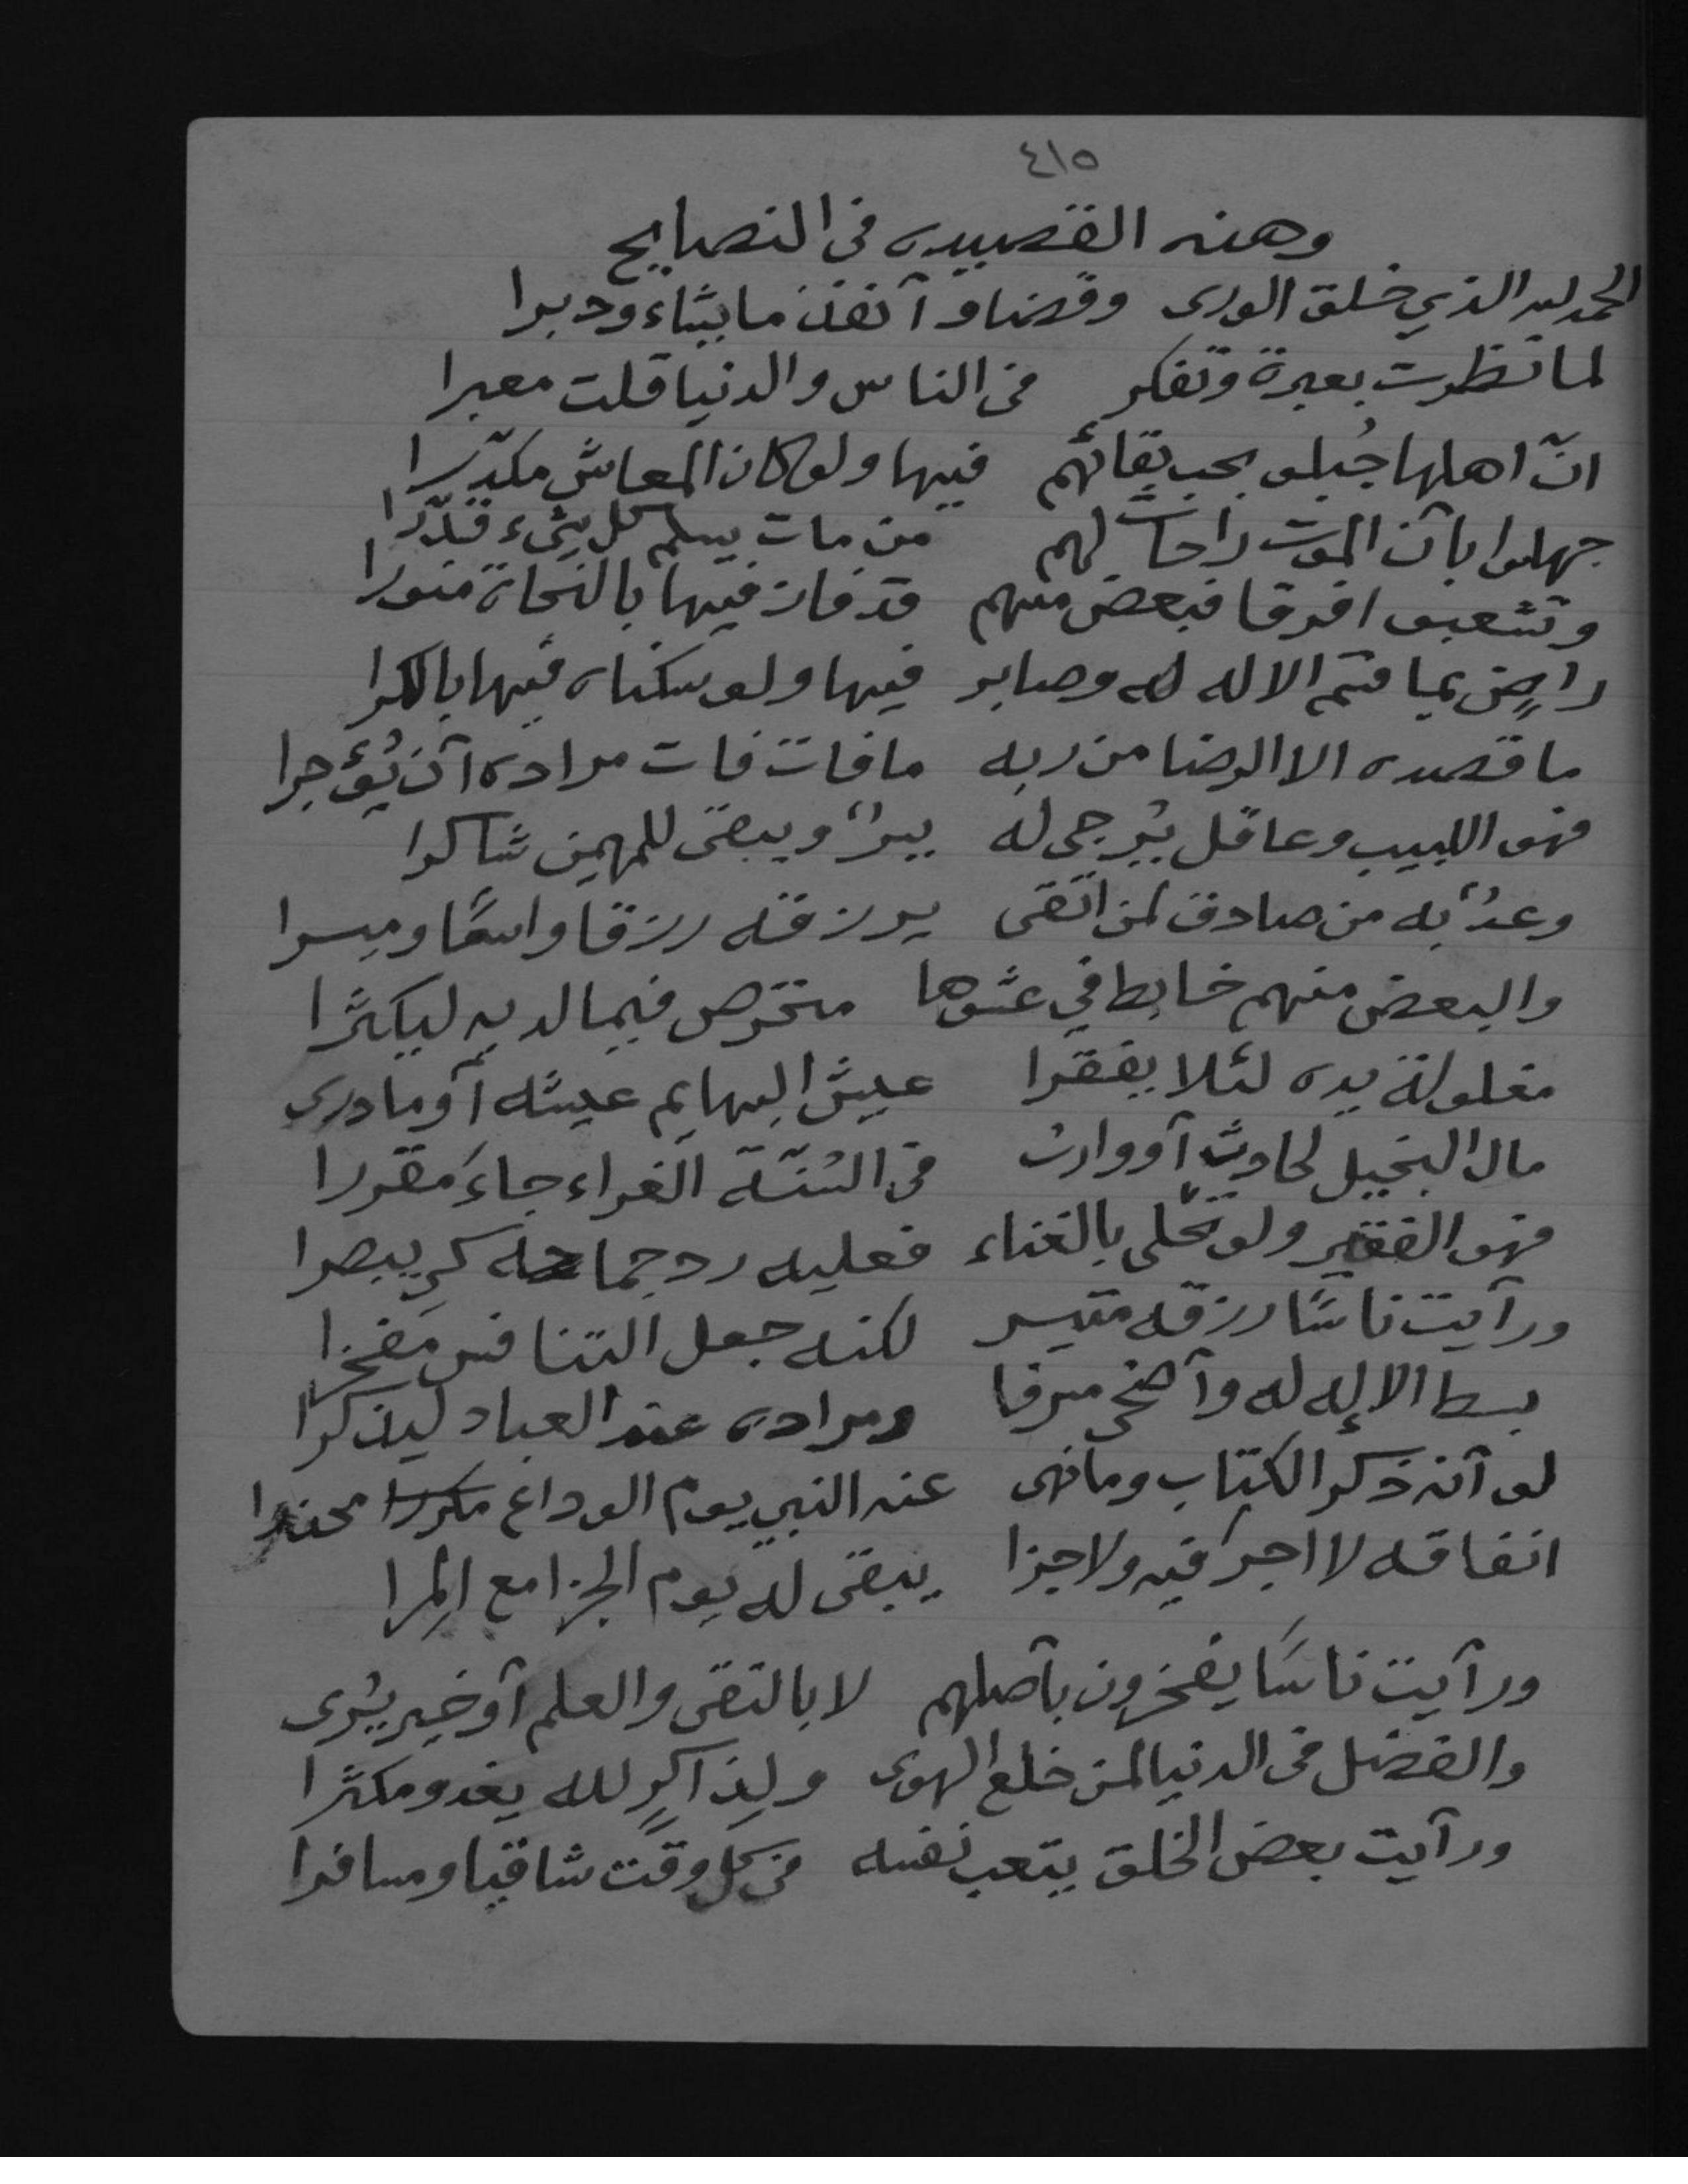 ٤١٥
وهذه القصيده في النصايح
الحمد لله الذي خلق الورى وقضا وآنفذ ما يشاء ودبرا
لما نظرت بعبرة وتفكر في الناس والدنيا قلت معبرا
انّ اهلها جُبلو بحب بقائهم فيها ولو كان المعاش مكدّرا
جهلوا بآن الموت راحات لهم من مات يسلم كل شيء قدّرا
وتشعبو افرقا فبعض منهم قد فاز فيها بالنجاة منورا
راضٍ بما قسم الاله له وصابر فيها ولو سكناه فيها بالكرا
ما قصده الا الرضا من ربه ما فات فات مراده آن يُؤجرا
فهو اللبيب وعاقل يُرجى له يسرٌ ويبقى للمهيمن شاكرا
وعدٌ به من صادق لمن اتقى يرزقه رزقا واسعًا وميسرا
والبعض منهم خابط في عشوها متخرص فيما لديه ليكثرا
مغلولة يده لئلا يفقرا عيش البهايم عيشه آو ما درى
مال البخيل لحادثٍ آو وارث في السُنّة الغراء جاءَ مقررا
فهو الفقير ولو تحلى بالغناء فعليه رد جماحه كي يبصرا
ورآيت ناسًا رزقه متيسر لكنه جعل التنافس مَفخرا
بسط الإله له وآضحى مسرفا ومراده عند العباد ليذكرا
لو آنه ذكر الكتاب وما نهى عنه النبي يوم الوداع محذرا
انفاقه لا اجرَ فيه ولا جزا يبقى له يوم الجزا مع المِرا
ورآيت ناسًا يفخرون بآصلهم لا بالتقى والعلم آو خير يُرى
والفضل في الدنيا لمن خلع الهوى ولِذاكرٍ لله يغدو مكثرا
ورآيت بعض الخلق يتعب نفسه في كل وقت شاقيا ومسافرا